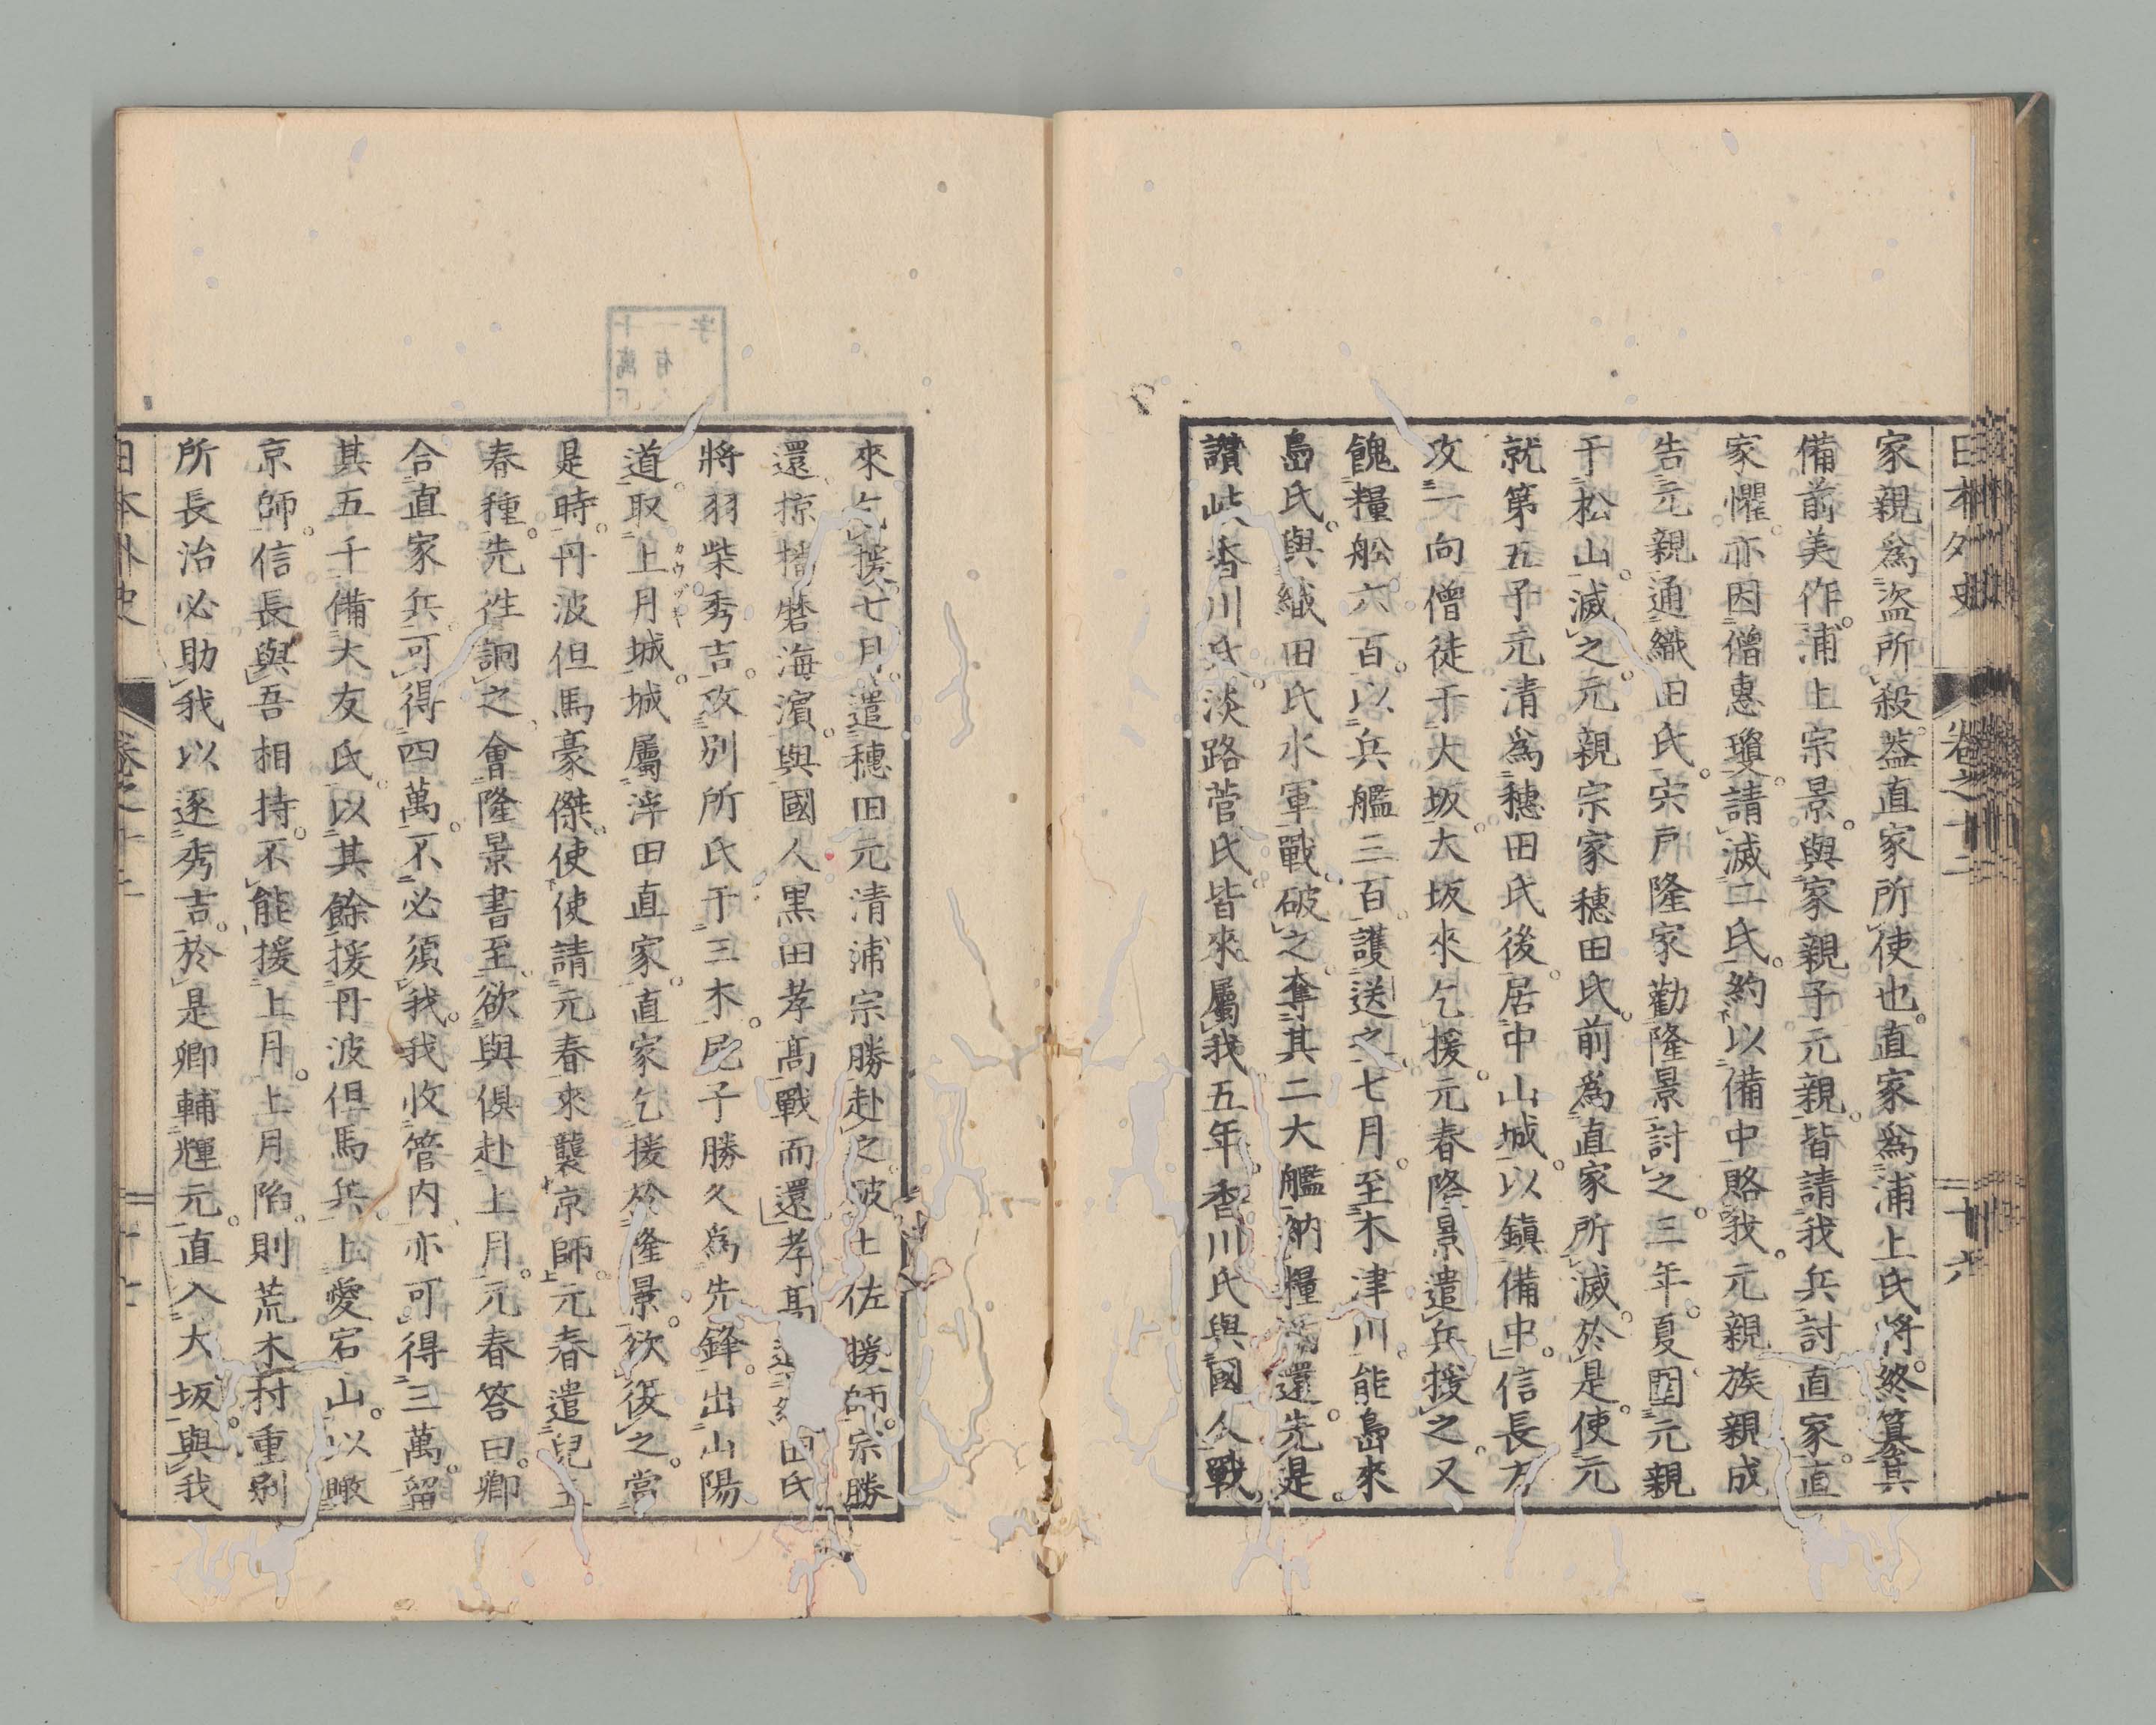 日本外史 卷之十二 十六
家親爲盜所殺。葢直家所使也。直家爲浦上氏將。終簒其
備前美作。浦上宗景。與家親子元親。皆請我兵討直家。直
家懼。亦因僧惠瓊。請滅二氏。約以備中賂我。元親族親成
告元親通織田氏。宍戶隆家勸隆景討之。三年夏。圍元親
于松山。滅之。元親宗家穗田氏。前爲直家所滅。於是。使元
就第五子元清爲穗田氏後。居中山城。以鎭備中。信長方
攻一向僧徒于大坂。大坂來乞援。元春隆景遣兵援之。又
餽糧舩六百。以兵艦三百。護送之。七月。至木津川。能島來
島氏。與織田氏水軍戰。破之。奪其二大艦。納糧 還。先是
讃岐香川氏。淡路菅氏。皆來屬我。五年。香川氏與國人戰
來乞援。七月。遣穗田元清浦宗勝赴之。 土佐 師。宗勝
還掠播磨海濱。與國人黒田孝髙戰而還。孝髙 田氏
將羽柴秀吉。攻別所氏于三木。尼子勝久爲先鋒。出山陽
道。取上月城。城屬浮田直家。直家乞援於隆景。欲復之。當
是時。丹波但馬豪傑。使使請元春來襲京師。元春遣兒玉
春種。先往詗之。會隆景書至。欲與倶赴上月。元春答曰。卿
合直家兵。可得四萬。不必須我。我收管内。亦可得三萬。留
其五千備大友氏。以其餘援丹波但馬兵。上愛宕山。以瞰
京師。信長與吾相持。不能援上月。上月陷。則荒木村重別
所長治必助我以逐秀吉。於是卿輔輝元。直入大坂。與我
日本外史 卷之十二